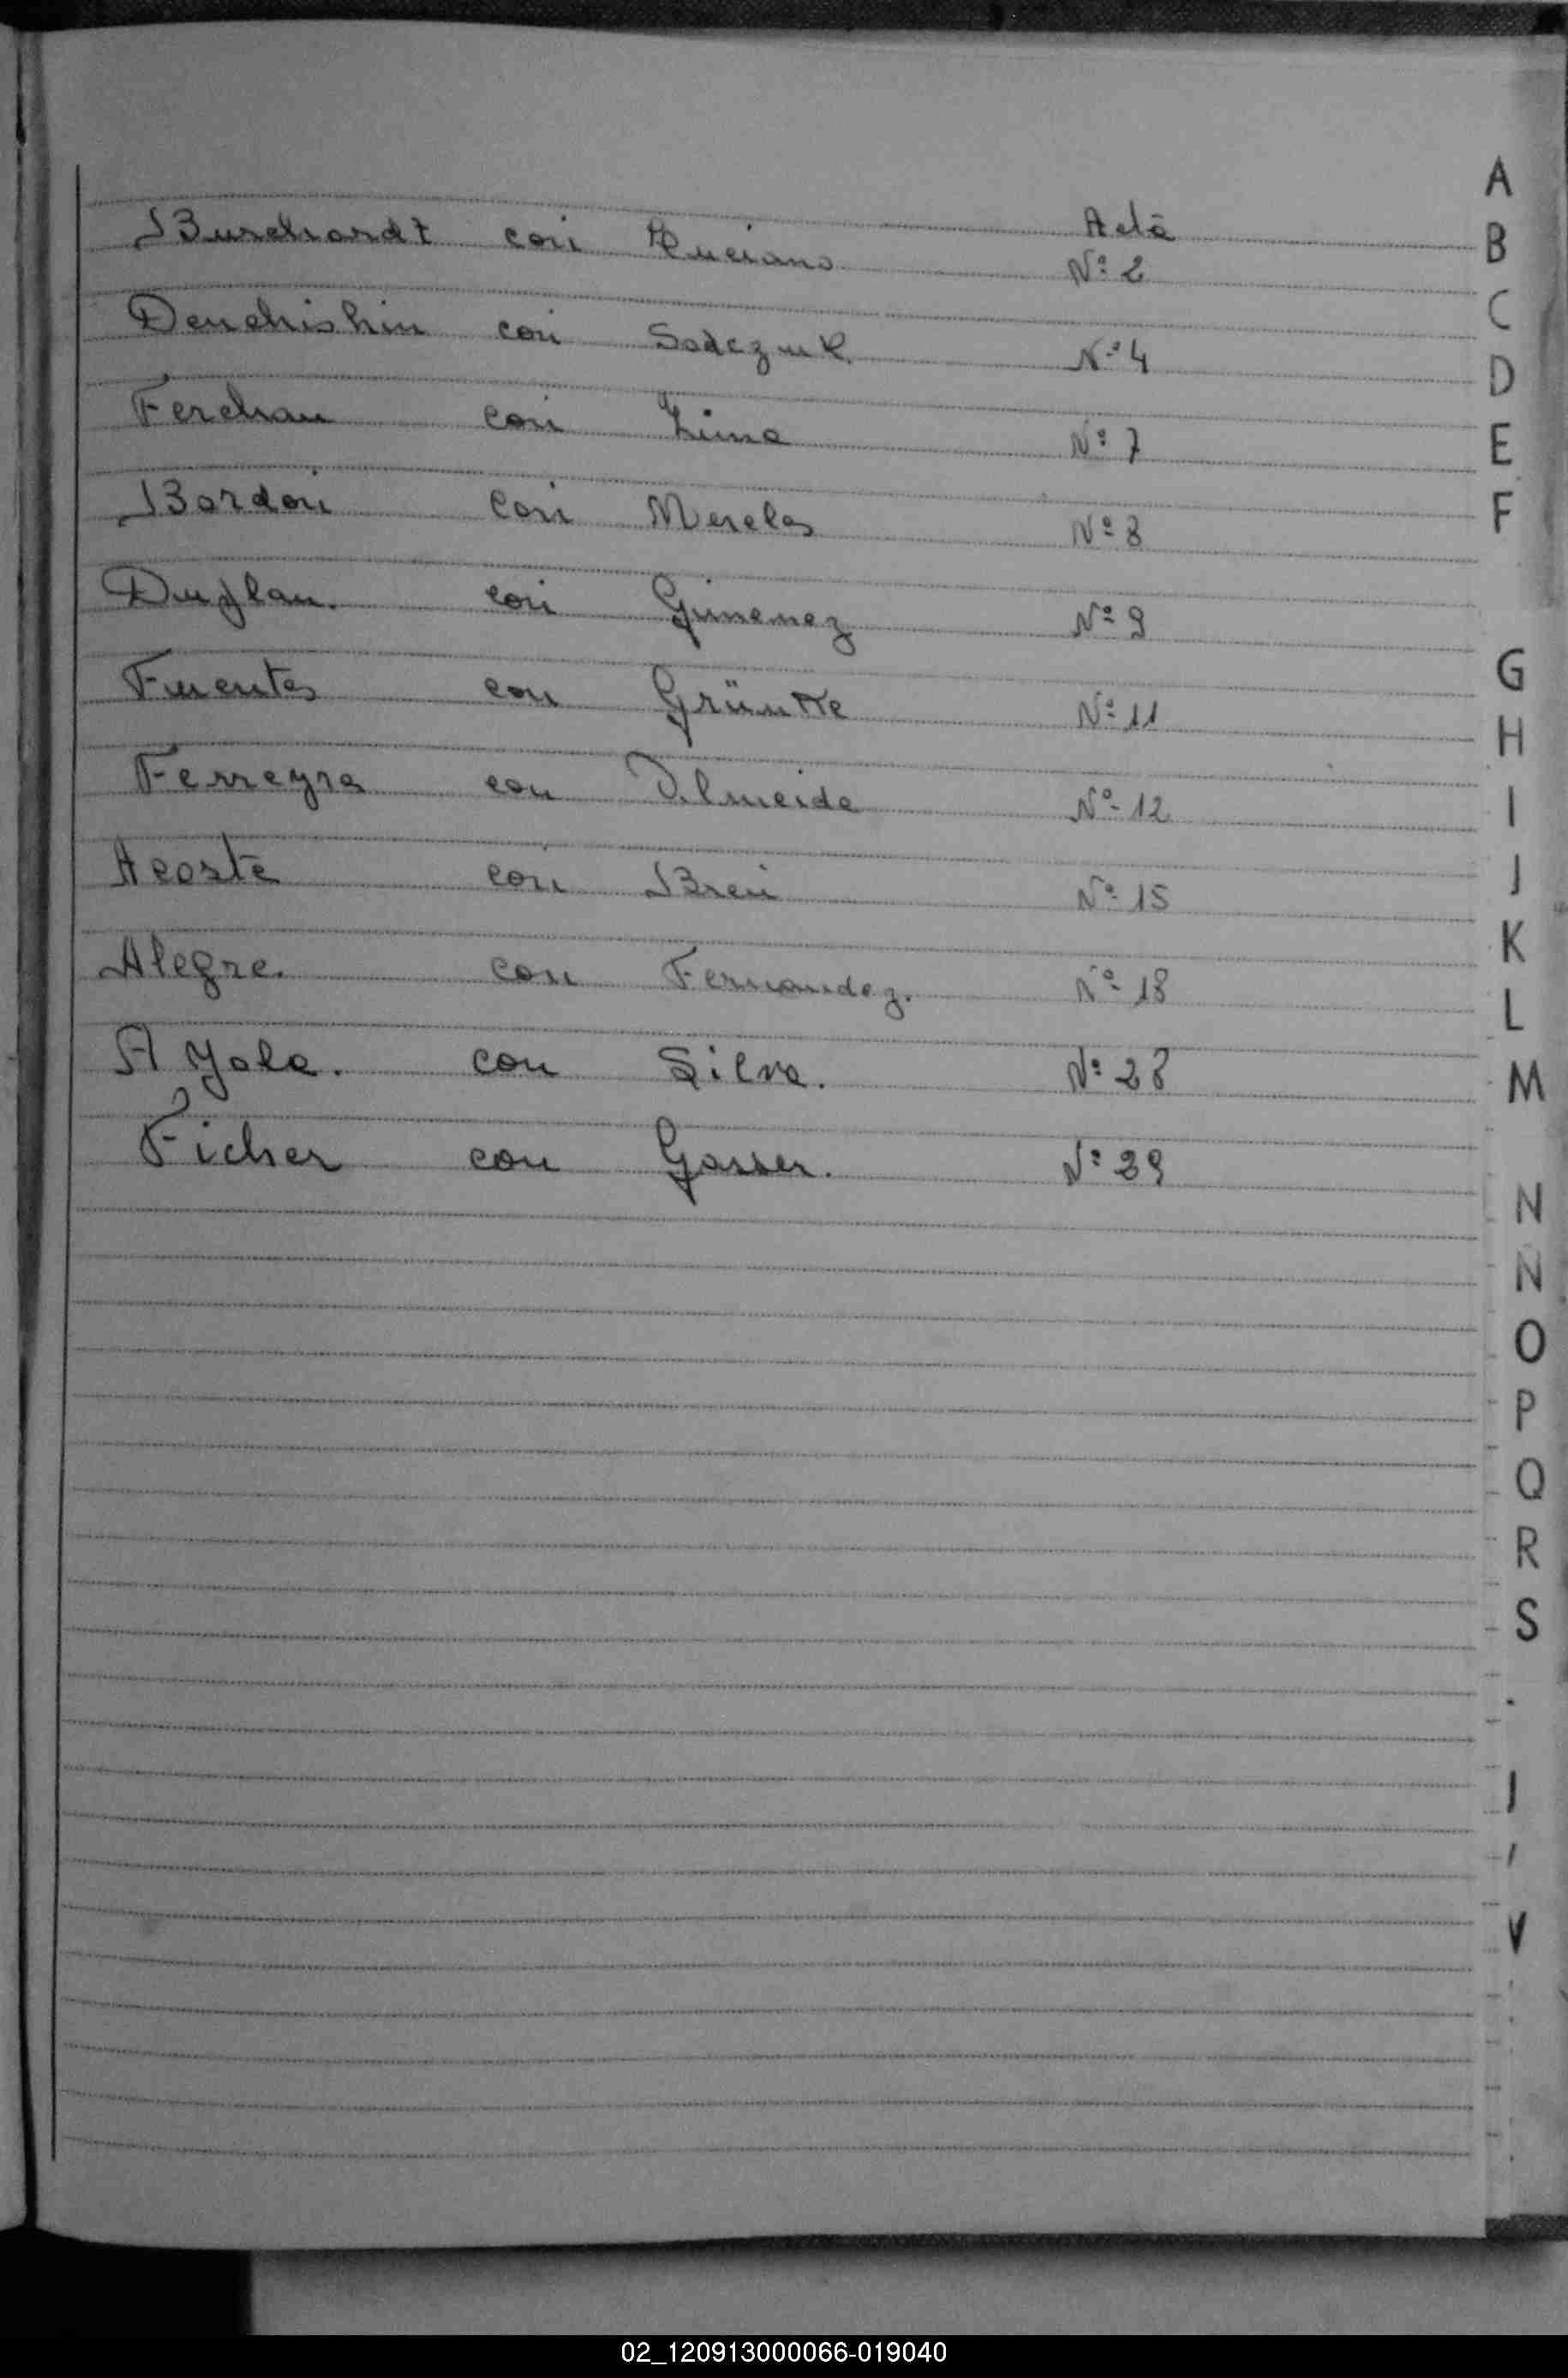 Acta
Burchardt con Luciano Nº 2
Denchishin con Sadczuk Nº 4
Ferchau con Lima Nº 7
Bordon con Mereles Nº 8
Duflan. con Gimenez Nº 9
Fuentes con Nº 11
Ferreyra con D'Almeida Nº 12
Acosta con Nº 15
Alegre. con Fernandez. Nº 18
Ayala. con Silva. Nº 28
Ficher con Gasser. Nº 29
A
B
C
D
E
F
G
H
I
J
K
L
M
N
N
O
P
Q
R
S
V
02_120913000066-019040